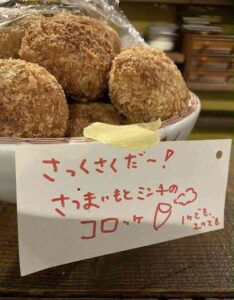 さっくさくだ〜!
さつまいもとミンチの
コロッケ
1ケでも、
2ケでも